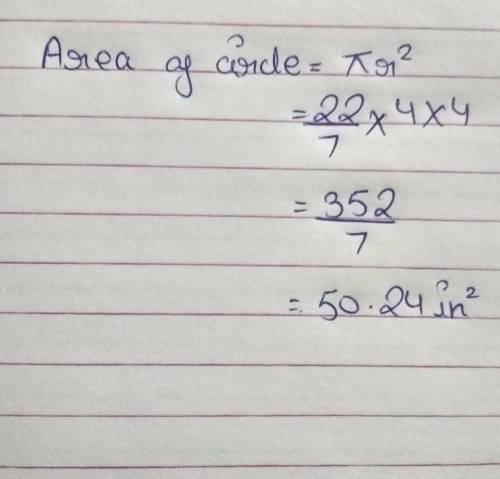 Area of circle = πr²
= 22/7 × 4 × 4
= 352/7
= 50.24 in²